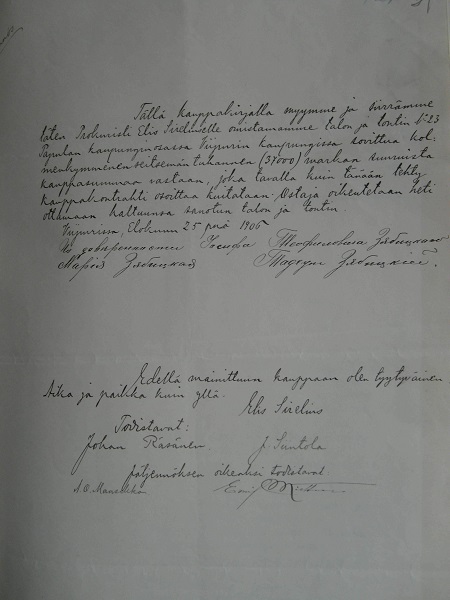 Tällä kauppakirjalla myymme ja siirrämme
täten Prokuristi Elis Sireliukselle omistamamme talon ja tontin No 23
Papulan kaupunginosassa Viipurin kaupungissa sovittua kol-
menkymmenen seitsemän tuhannen (37000) markan suuruista
kauppasummaa vastaan, joka tavalla kuin tänään tehty
kauppakontrahti osoittaa kuitataan. Ostaja oikeutetaan heti
ottamaan haltuunsa sanotun talon ja tontin.
Viipurissa, Elokuun 25 p:nä 1906
По довѣренности Теофиловича
Марія Зябицкая Тадеуш Зябицкій.
Edellä mainittuun kauppaan olen tyytyväinen
Aika ja paikka kuin yllä.
Elis Sirelius
Todistavat:
Johan Räsänen J. Suntola
Jäljennöksen oikeaksi todistavat: